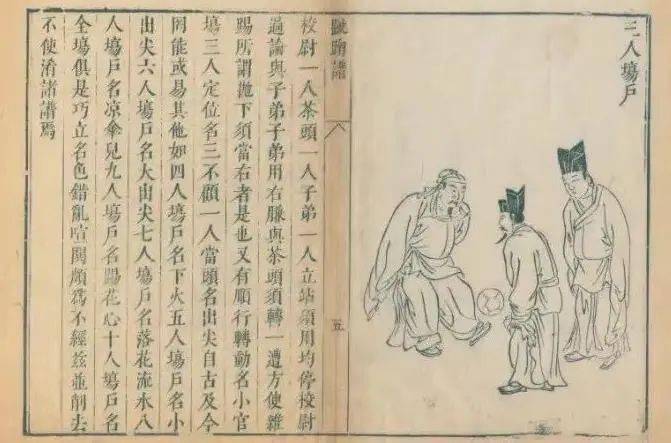 三人塲戶
蹴踘譜
五
校尉一人茶頭一人子弟一人立站須用均停校尉
過論與子弟子弟用右膁與茶頭須轉一遭方使雜
踢所謂拋下須當右者是也又有順行轉動名小官
塲三人定位名三不顧一人當頭名出尖自古及今
罔能或易其他如四人塲戶名下火五人塲戶名小
出尖六人塲戶名大出尖七人塲戶名落花流水八
人塲戶名凉傘兒九人塲戶名踢花心十人塲戶名
全塲俱是巧立名色錯亂喧鬨頗爲不經兹並削去
不使淆諸譜焉